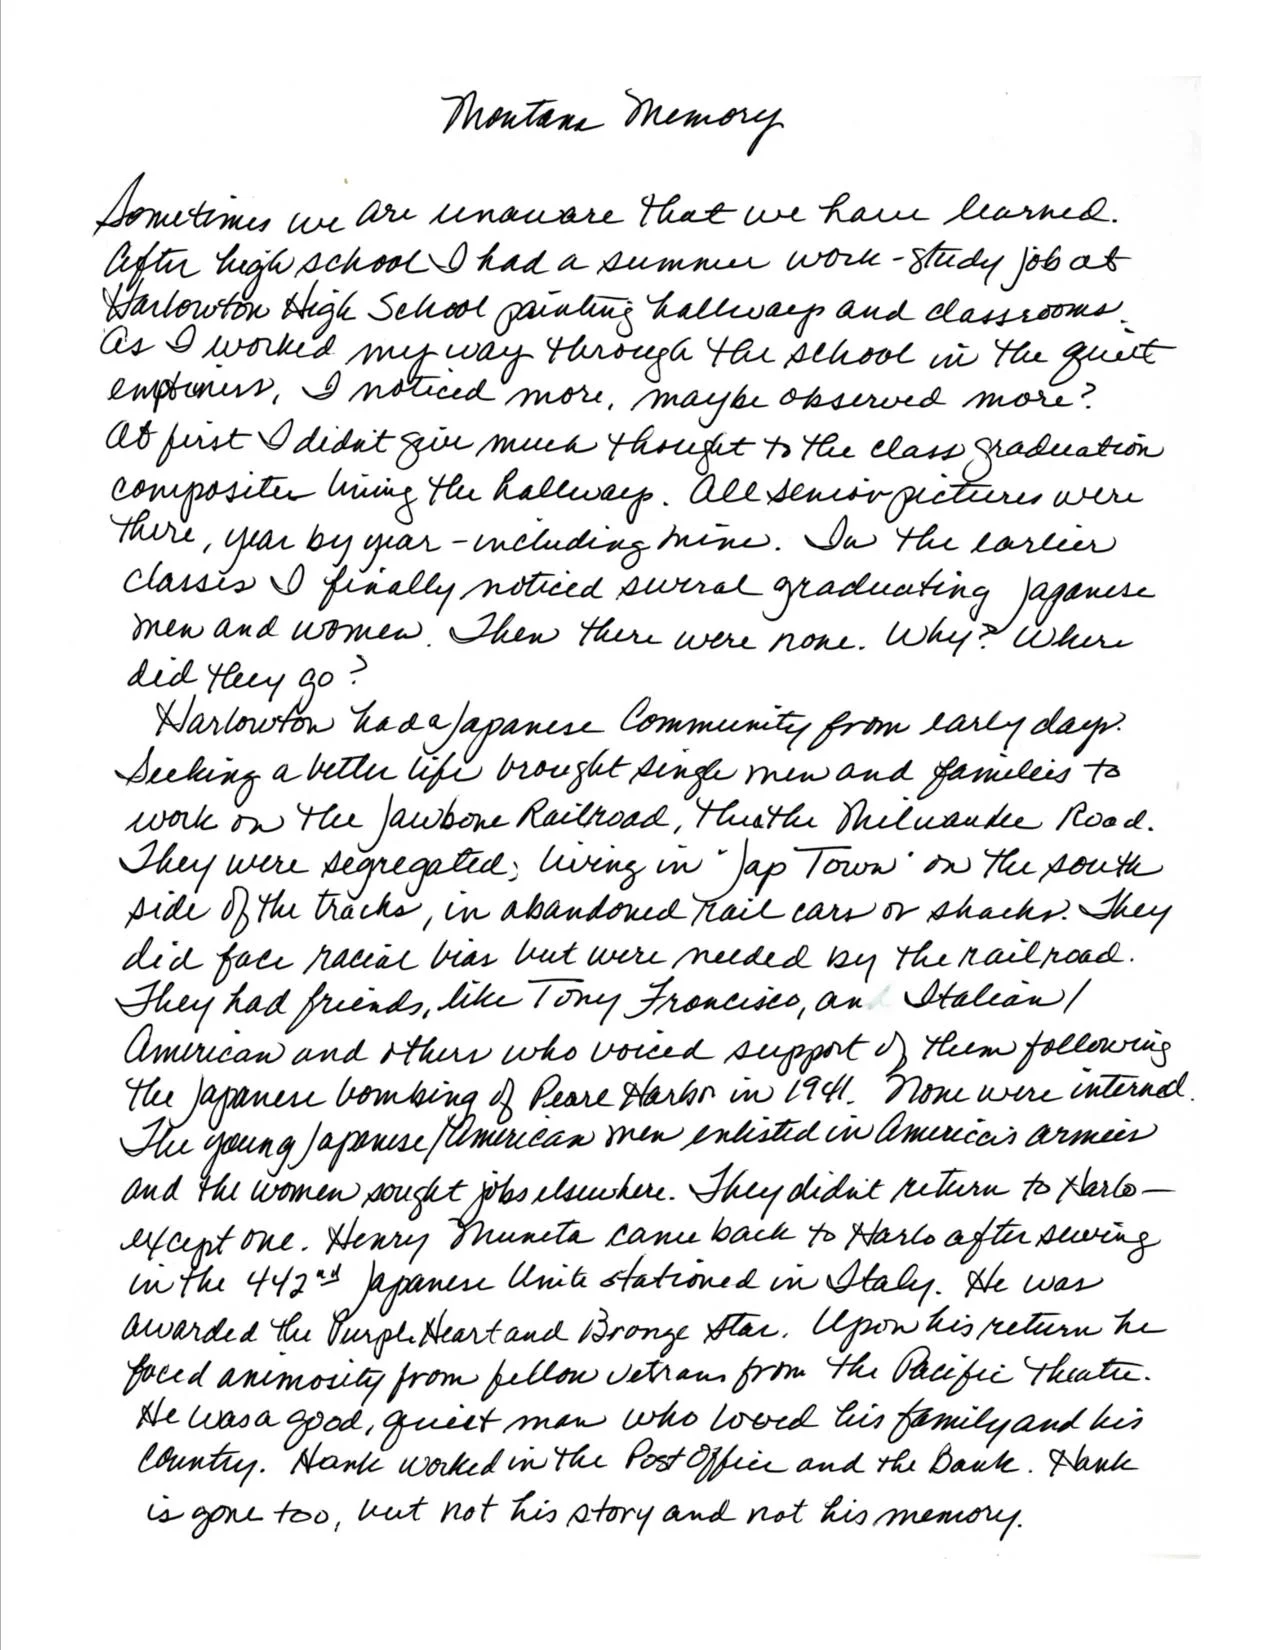 Montana Memory
Sometimes we are unaware that we have learned.
After high school I had a summer work-study job at
Harlowton High School painting hallways and classrooms.
As I worked my way through the school in the quiet
emptiness, I noticed more, maybe observed more?
At first I didn't give much thought to the class graduation
composites lining the hallways. All senior pictures were
there, year by year - including mine. In the earlier
classes I finally noticed several graduating Japanese
men and women. Then there were none. Why? Where
did they go?
Harlowton had a Japanese Community from early days.
Seeking a better life brought single men and families to
work on the Jawbone Railroad, then the Milwaukee Road.
They were segregated; living in "Jap Town" on the south
side of the tracks, in abandoned rail cars or shacks. They
did face racial bias but were needed by the railroad.
They had friends, like Tony Francisco, an Italian/
American and others who voiced support of them following
the Japanese bombing of Pearl Harbor in 1941. None were interned.
The young Japanese/American men enlisted in America's armies
and the women sought jobs elsewhere. They didn't return to Harlo—
except one. Henry Muneta came back to Harlo after serving
in the 442nd Japanese Unite stationed in Italy. He was
awarded the Purple Heart and Bronze Star. Upon his return he
faced animosity from fellow vetrans from the Pacific Theatre.
He was a good, quiet man who loved his family and his
Country. Hank worked in the Post Office and the Bank. Hank
is gone too, but not his story and not his memory.